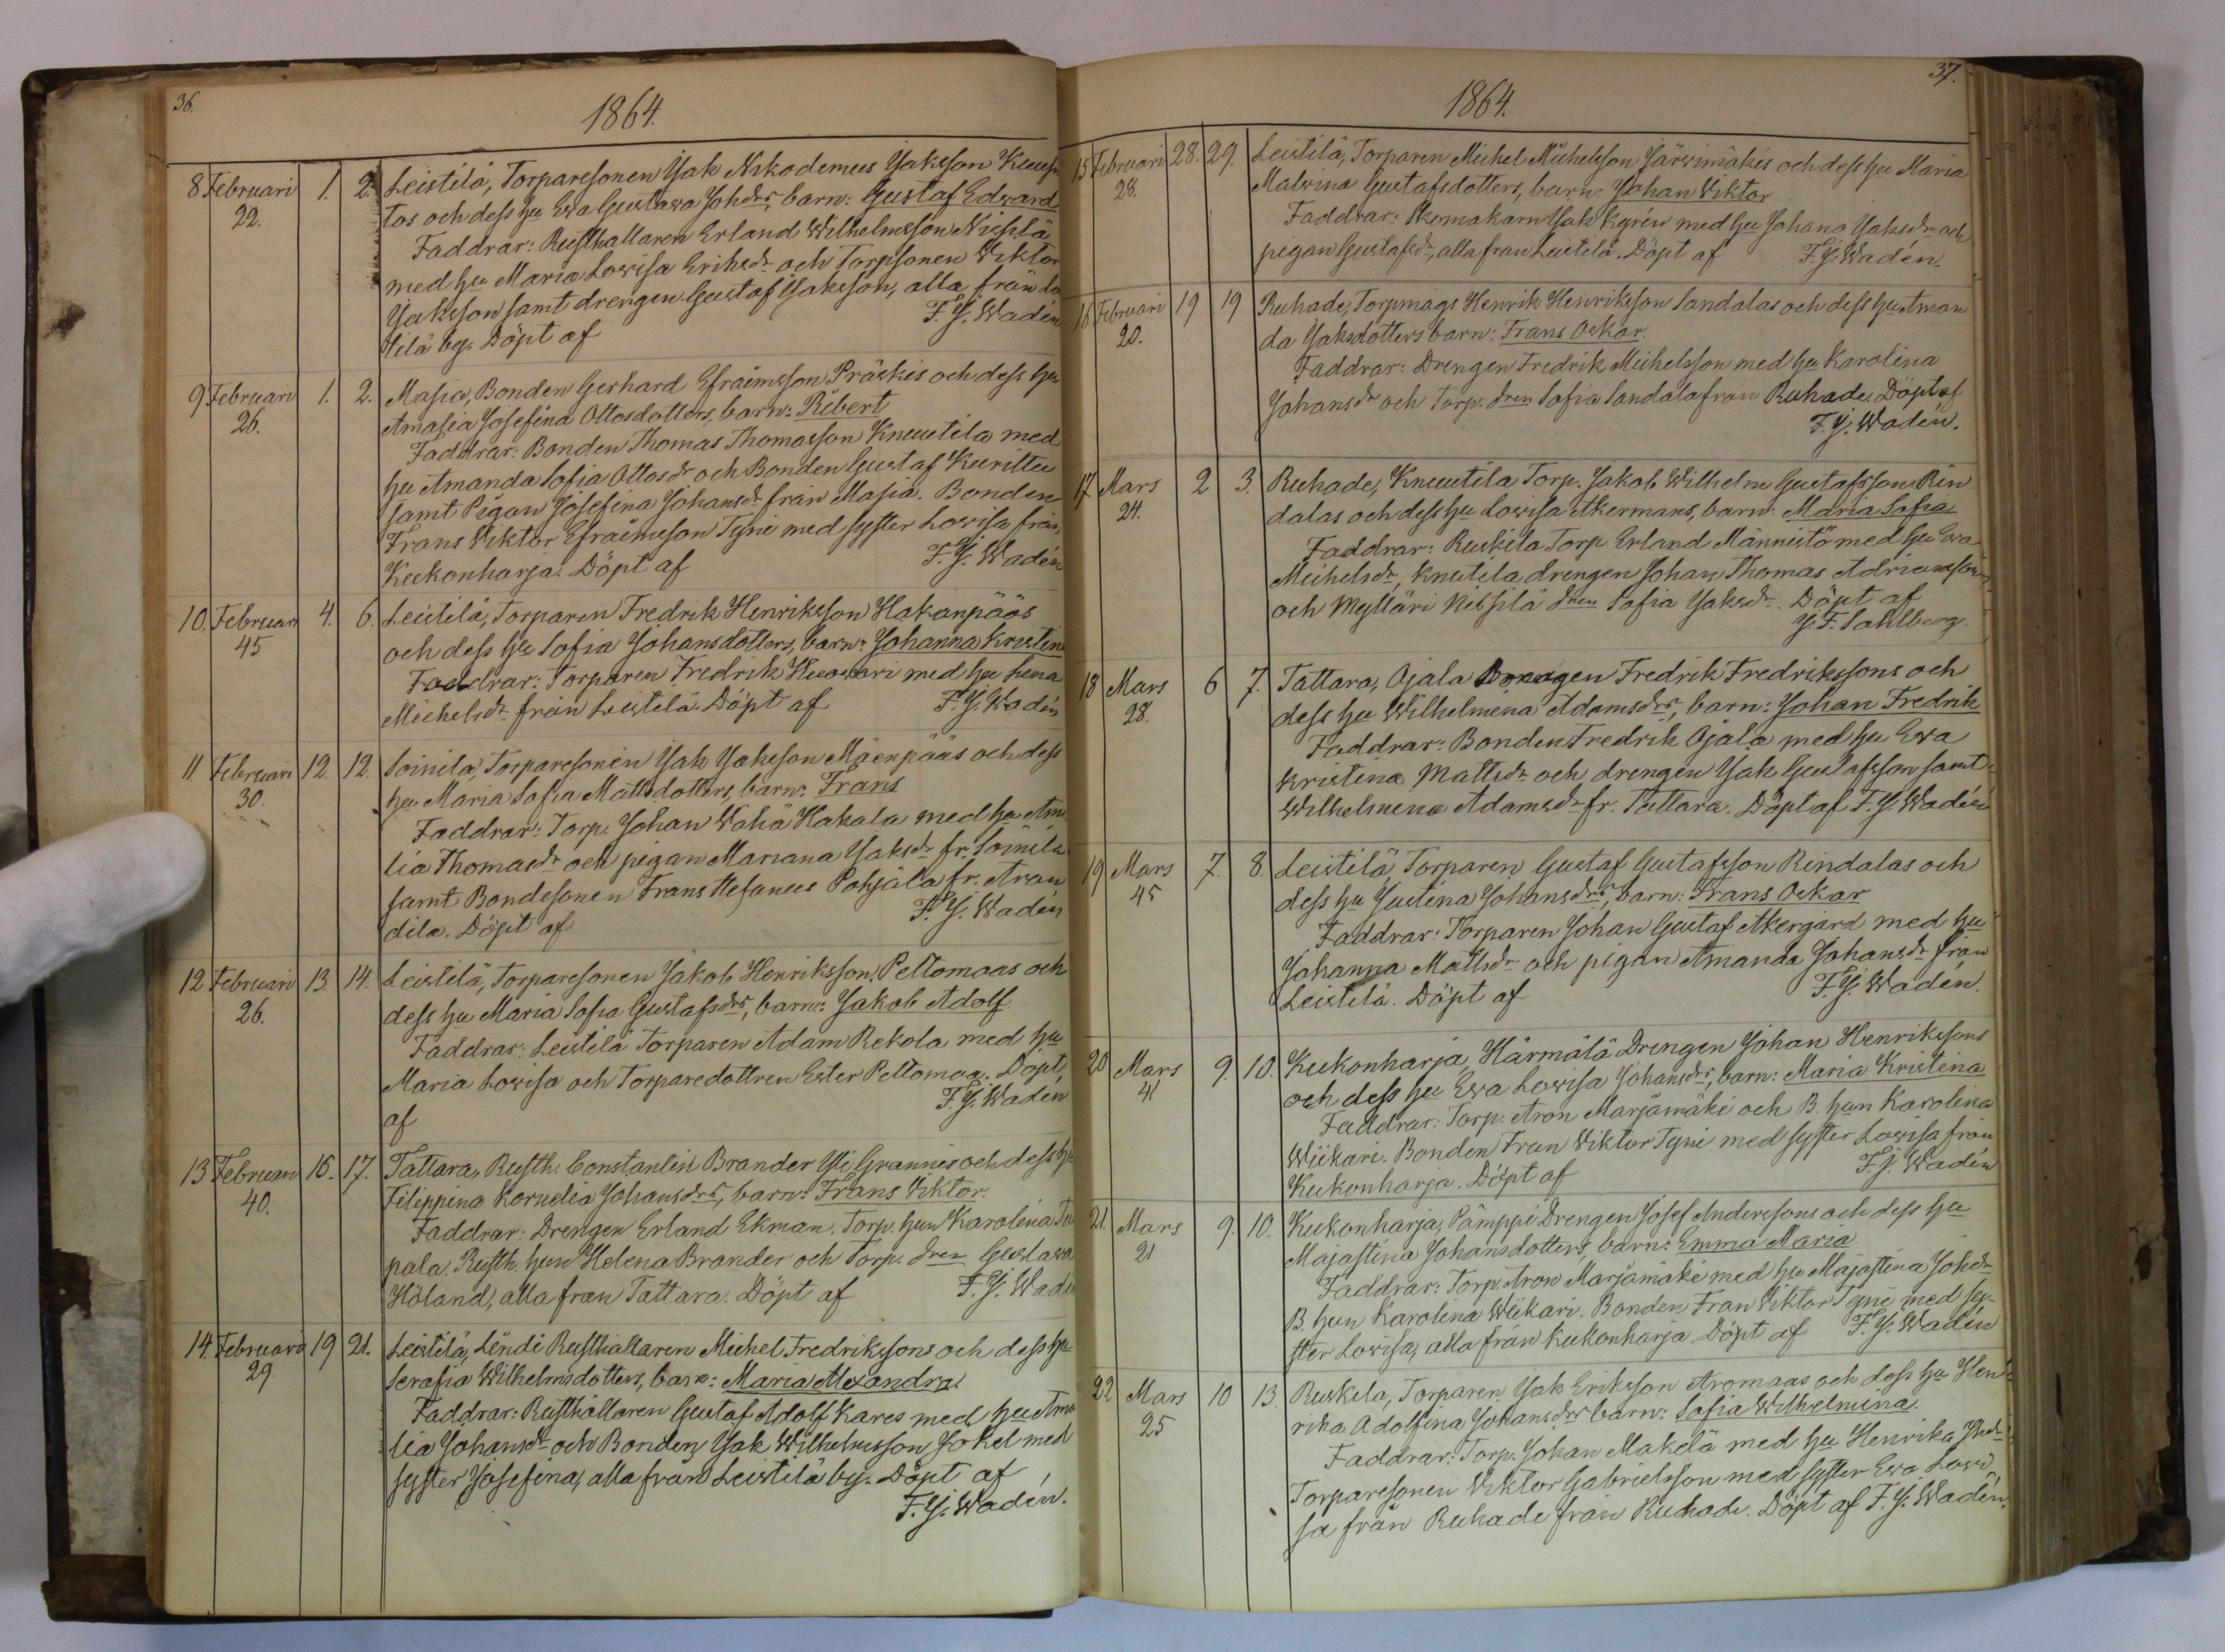 36.
1864.
8 Februari 1. 2. Leistilä, Torparesonen Isak Nikodemus Isaksson
22. tos och dess hu Ewa Gustawa Johdrs, barn: Gustaf Edward
Faddrar: Rusthållaren Erland Wilhelmsson Nissilä
med hu Maria Lowisa Eriksdr och Torpsonen Viktor
Isaksson samt drengen Gustaf Isaksson, alla från Lei
stilä by. Döpt af F. J. Wadén
9 Februari 1. 2. Masia, Bonden Gerhard Efraimsson Präskis och dess hu
26. Amalia Josefina Ottosdotters, barn: Ribert
Faddrar: Bonden Thomas Thomasson Knuutila med
hu Amanda Sofia Ottosdr och Bonden Gustaf Kurittu
samt Pigan Josefina Johansdr från Masia. Bonden
Frans Viktor Efraimsson Tyni med syster Lowisa från
Kukonharja. Döpt af F. J. Wadén
10. Februari 4. 6. Leistilä, Torparen Fredrik Henriksson Hakanpääs
45 och dess hu Sofia Johansdotters, barn: Johanna Kristina
Faddrar: Torparen Fredrik med hu Lena
Michelsdr från Leistilä. Döpt af F. J. Wadén
11. Februari 12. 12. Soinila, Torparesonen Isak Isaksson Mäenpääs och dess
30. hu Maria Sofia Mattsdotters, barn: Frans
Faddrar: Torp. Johan Wähä Hakala med hu Ama
lia Thomasdr och pigan Mariana Isaksdr fr. Soinila
samt Bondesonen Frans Stefanus Pohjala fr. Aran
dila. Döpt af F. J. Wadén
12 Februari 13. 14. Leistilä, Torparesonen Jakob Henriksson Peltomaas och
26. dess hu Maria Sofia Gustafsdrs, barn: Jakob Adolf
Faddrar: Leistilä Torparen Adam Rekola med hu
Maria Lowisa och Torparedottren Ester Peltomaa. Döpt
af F. J. Wadén
13 Februari 16. 17. Tattara, Rusth. Constantin Brander Yli Grannis och dess hu
40. Filippina Kornelia Johansdrs, barn: Frans Viktor.
Faddrar: Drengen Erland Ekman. Torp. hun Karolina Tu
pala. Rusth. hun Helena Brander och Torp. dren Gustawa
Höland, alla från Tattara. Döpt af F. J. Wadé
14. Februari 19 21. Leistilä, Lendi Rusthållaren Michel Fredrikssons och dess hu
29. Serafia Wilhelmsdotters, barn: Maria Alexandra.
Faddrar: Rusthållaren Gustaf Adolf Kares med hu Ama
lia Johansdr och Bonden Isak Wilhelmsson Jokel med
syster Josefina, alla från Leistilä by. Döpt af
F. J. Wadén.
37.
1864.
15 Februari 28. 29. Leistilä, Torparen Michel Michelsson Järwimäkis och dess hu Maria
28. Malvina Gustafsdotters, barn: Johan Viktor
Faddrar: Skomakarn Isak Kyrén med hu Johana Isaksdr och
pigan Gustafsdr, alla från Leistilä. Döpt af F. J. Wadén.
16 Februari 19 19 Ruhade, Torpmågs Henrik Henriksson Sandalas och dess hu Aman
20. da Isaksdotters barn: Frans Oskar.
Faddrar: Drengen Fredrik Michelsson med hu Karolina
Johansdr och Torp. dren Sofia Sandala från Ruhade. Döpt af
F. J. Wadén.
17 Mars 2 3. Ruhade, Knuutila Torp. Jakob Wilhelm Gustafsson Rin
24. dalas och dess hu Lowisa Akermans, barn: Maria Sofia
Faddrar: Ruskila Torp. Erland Männistö med hu Ewa
Michelsdr, Knutila drengen Johan Thomas Adriansson
och Mylläri Nissilä dren Sofia Isaksdr. Döpt af
J. F. Sahlberg.
18 Mars 6 7. Tattara, Ojala Drengen Fredrik Fredrikssons och
28. dess hu Wilhelmina Adamsdrs, barn: Johan Fredrik
Faddrar: Bonden Fredrik Ojala med hu Ewa
Kristina Mattsdr och drengen Isak Gustafsson samt
Wilhelmina Adamsdr fr. Tattara. Döpt af F. J. Wadén
19 Mars 7. 8. Leistilä, Torparen Gustaf Gustafsson Rindalas och
45 dess hu Justina Johansdrs, barn: Frans Oskar
Faddrar: Torparen Johan Gustaf Akergård med hu
Johanna Mattsdr och pigan Amanda Johansdr från
Leistilä. Döpt af F. J. Wadén.
20 Mars 9. 10. Kukonharja, Härmälä Drengen Johan Henrikssons
41 och dess hu Ewa Lowisa Johansdrs, barn: Maria Kristina
Faddrar: Torp. Aron Marjamäki och B. hun Karolina
Wiikari. Bonden Fran Viktor Tyni med syster Lowisa från
Kukonharja. Döpt af F. J. Wadén
21. Mars 9. 10. Kukonharja, Pämppi Drengen Josef Anderssons och dess hu
21 Majastina Johansdotters, barn: Emma Maria
Faddrar: Torp. Aron Marjamäki med hu Majastina Johdr
B. hun Karolina Wiikari. Bonden Fran Viktor Tyni med sy-
ster Lowisa, alla från Kukonharja Döpt af F. J. Wadén
22 Mars 10 13. Ruskila, Torparen Isak Eriksson Aromaas och dess hu Hen-
25 rika Adolfina Johansdrs barn: Sofia Wilhelmina.
Faddrar: Torp. Johan Makelä med hu Henrika Jhdr
Torparesonen Viktor Gabrielsson med syster Ewa Lowi
sa från Ruhade från Ruhade. Döpt af F. J. Wadén.